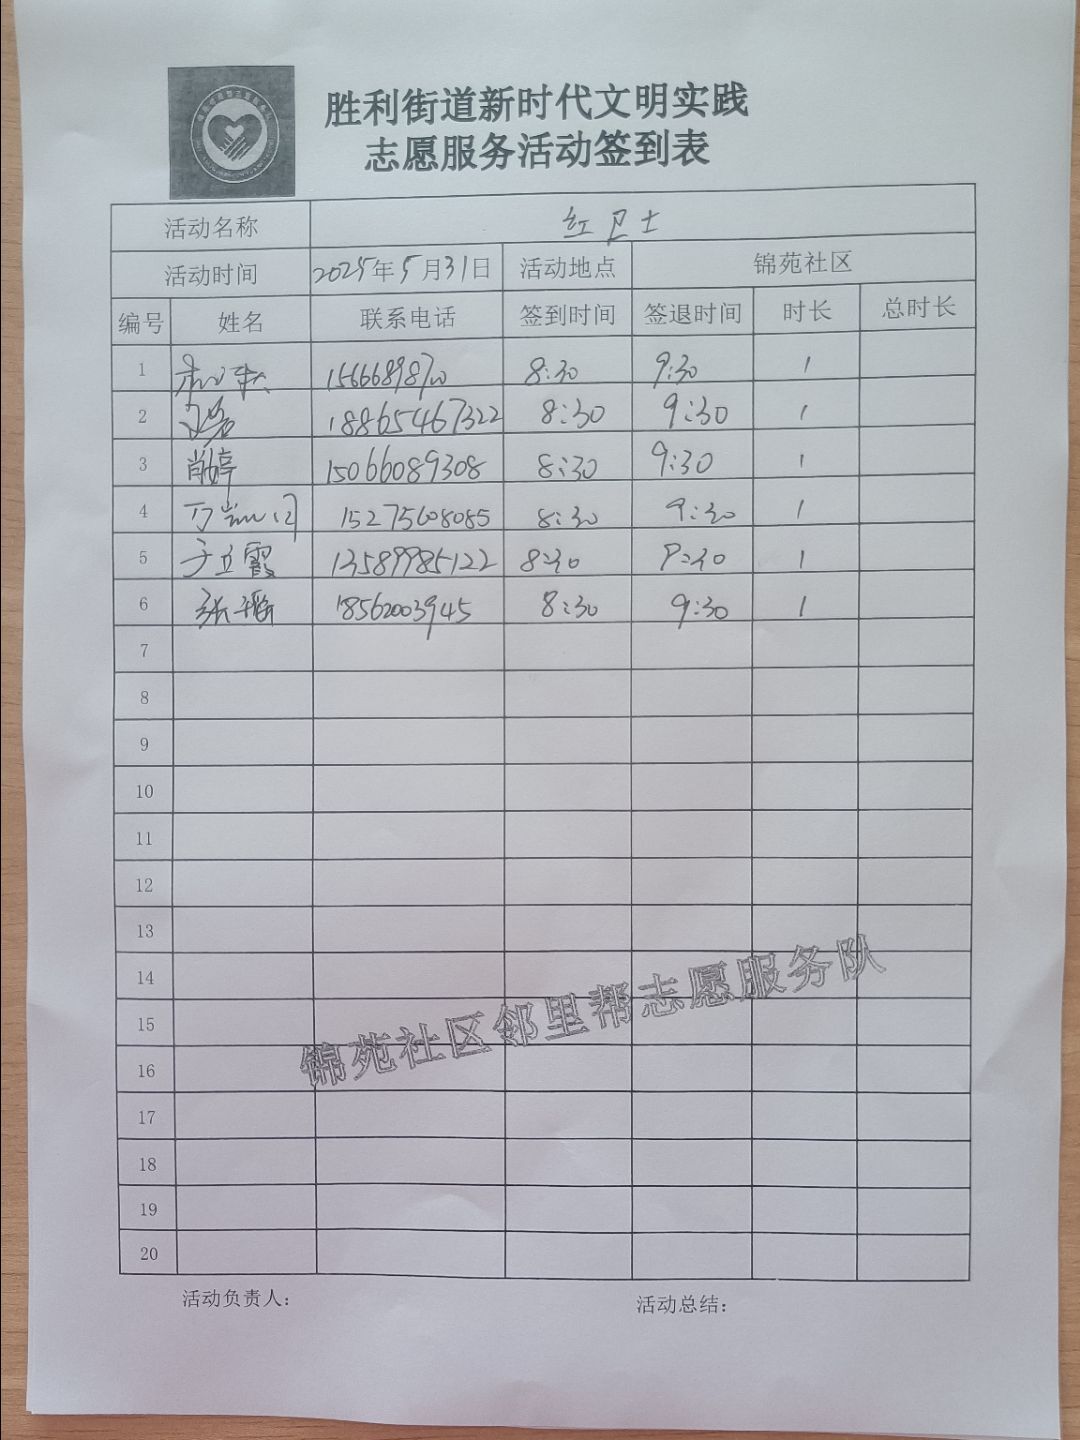 胜利街道新时代文明实践
志愿服务活动签到表
活动名称 红卫士
活动时间 2025年5月31日 活动地点 锦苑社区
编号 姓名 联系电话 签到时间 签退时间 时长 总时长
1 8:30 9:30 1
2 18865467322 8:30 9:30 1
3 肖婷 15066089308 8:30 9:30 1
4 15275608085 8:30 9:30 1
5 于立霞 13589985122 8:30 9:30 1
6 张瑶 18562003945 8:30 9:30 1
7
8
9
10
11
12
13
14
15
16
17
18
19
20
锦苑社区邻里帮志愿服务队
活动负责人: 活动总结: